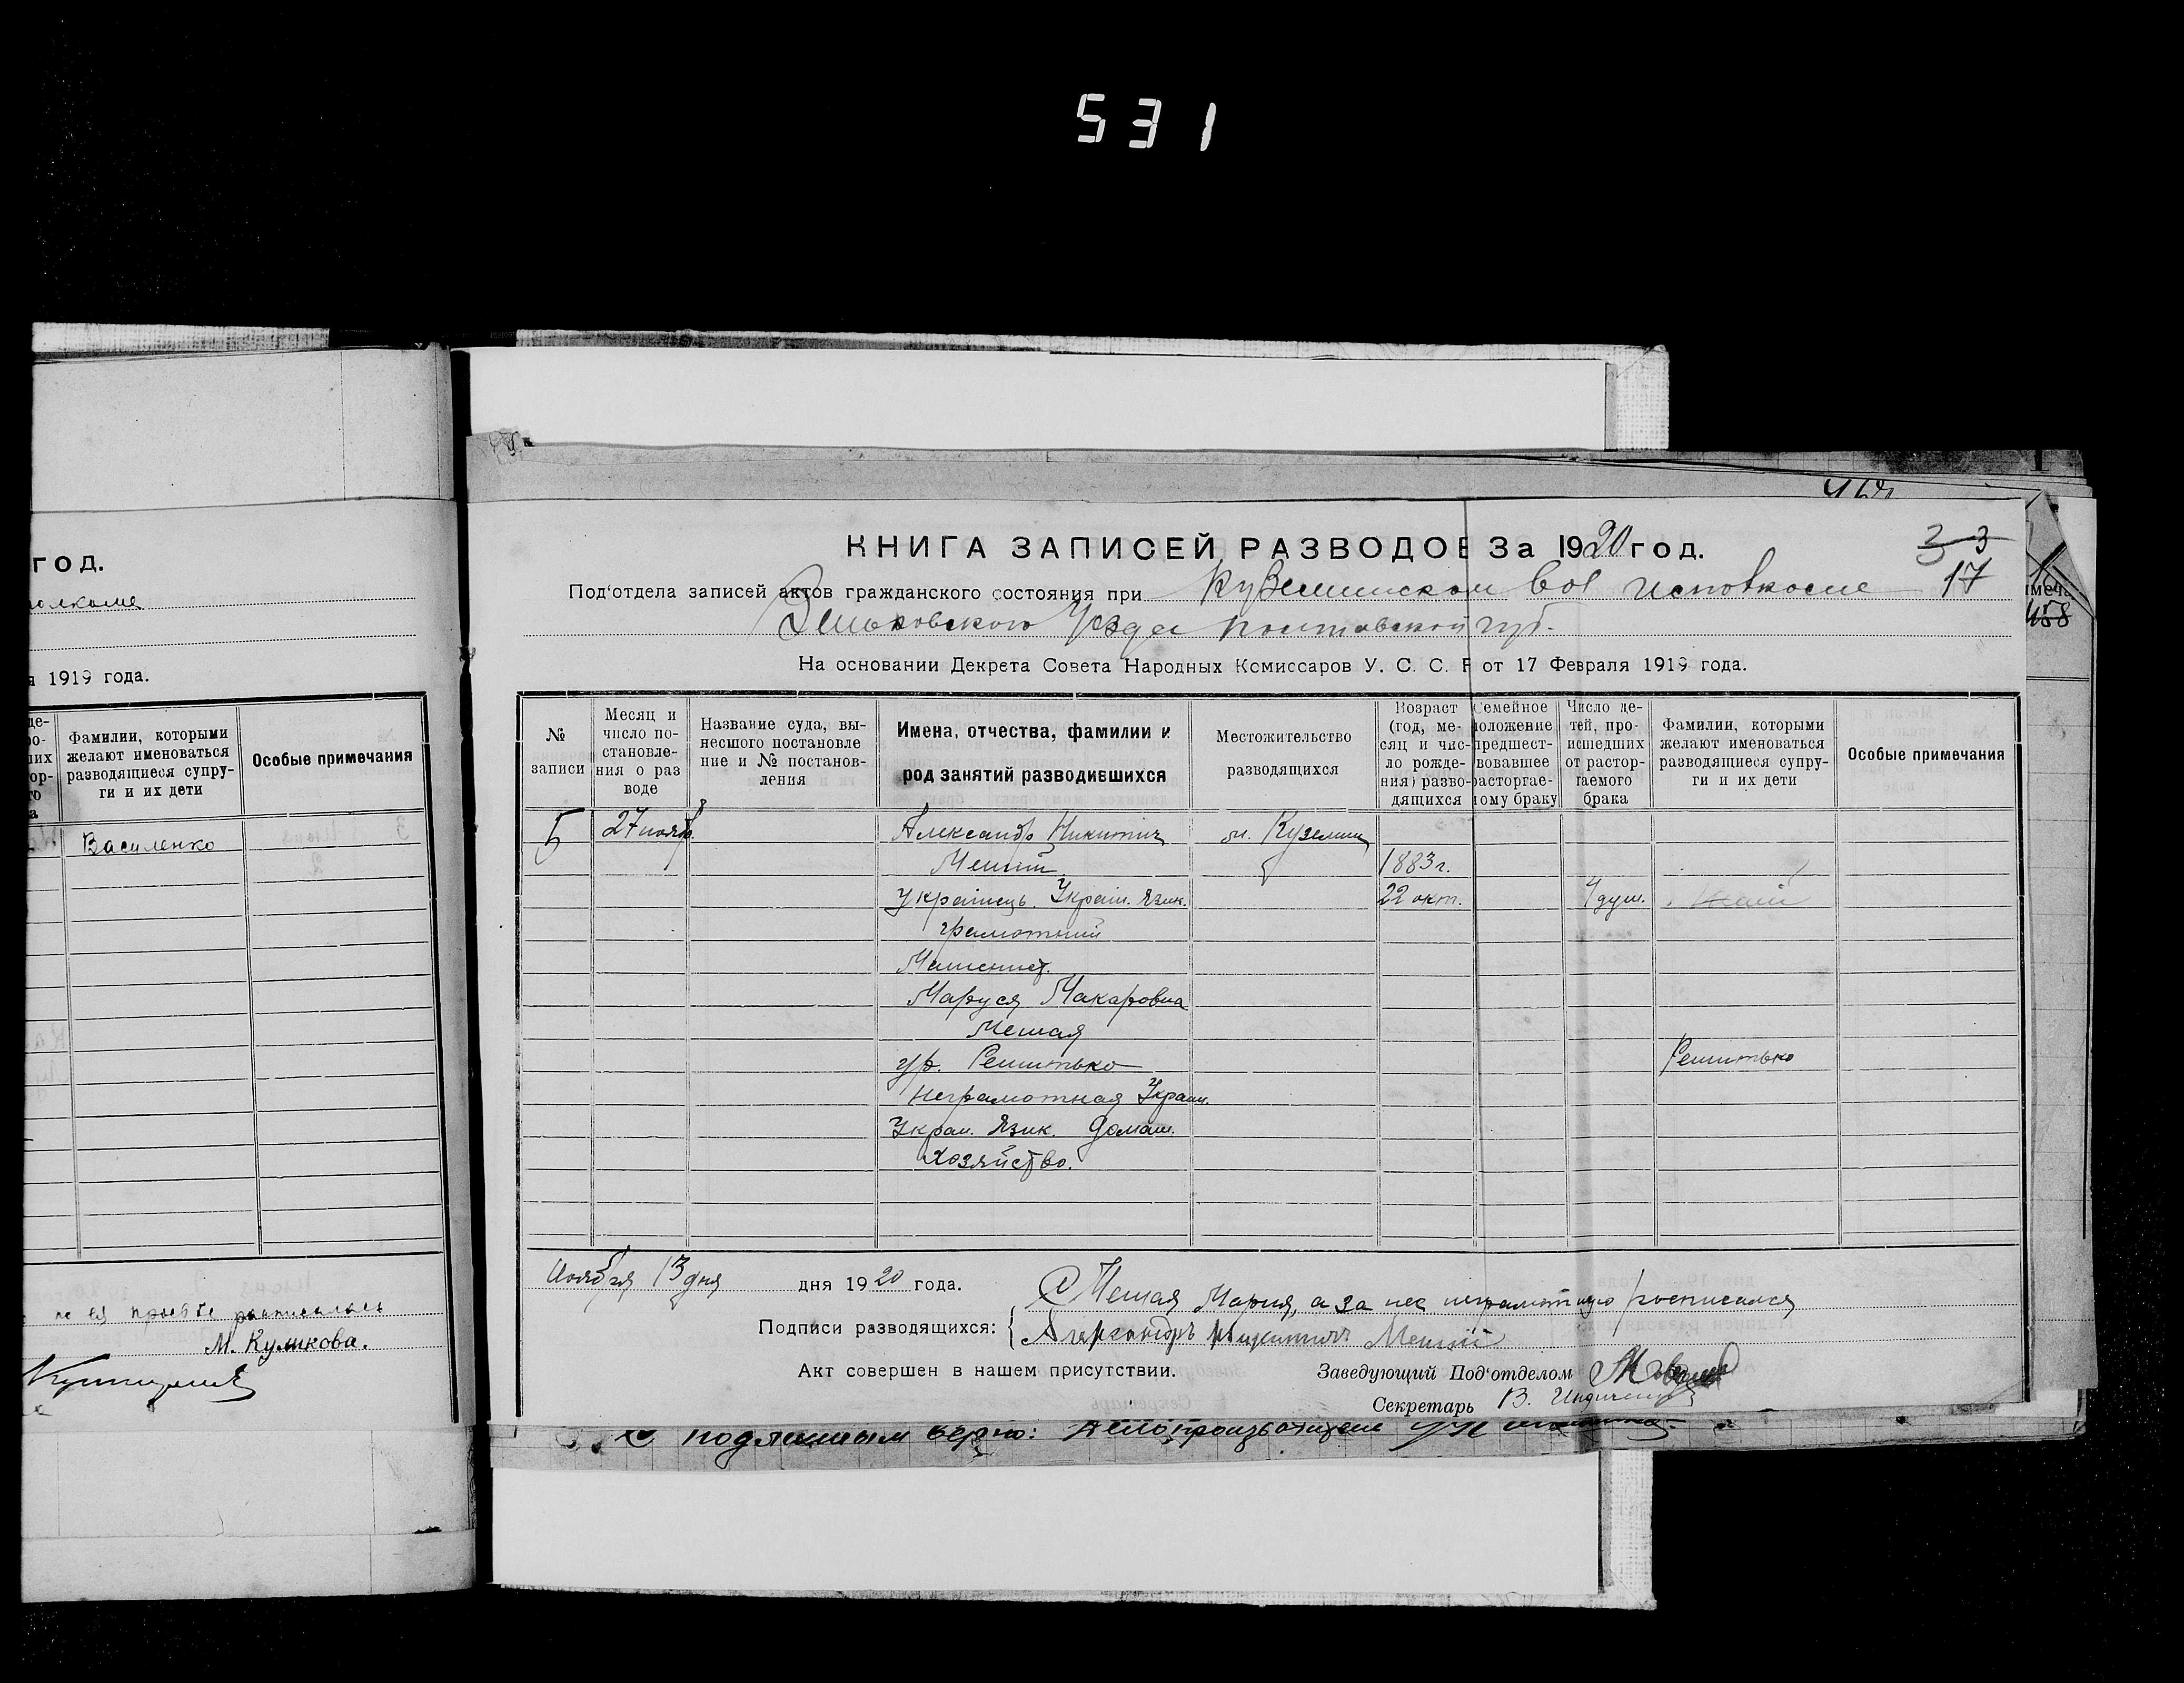 531
ГОД.
1919 года.
Фамилии, которыми желают именоваться разводящиеся супруги и их дети
Особые примечания
Василенко
М. Куликова.
КНИГА ЗАПИСЕЙ РАЗВОДОВ За 1920 год.
3 3
17
458
Под'отдела записей актов гражданского состояния при Куземинском Вол исполкоме
Зеньковского Уезда Полтавской губ.
На основании Декрета Совета Народных Комиссаров У. С. С. Р от 17 Февраля 1919 года.
№ записи
Месяц и число постановления о разводе
Название суда, вынесшого постановление и № постановления
Имена, отчества, фамилии и род занятий разводившихся
Местожительство разводящихся
Возраст (год, месяц и число рождения) разводящихся
Семейное положение предшествовавшее расторгаемому браку
Число детей, происшедших от расторгаемого брака
Фамилии, которыми желают именоваться разводящиеся супруги и их дети
Особые примечания
5 27 нояб. Александр Никитич м. Куземин
1883 г.
Українець. Україн. Язик. 22 окт. 4 душ.
грамотний
Машинист.
Маруся Макаровна
ур. Решитько Решитько
Неграмотная Украин.
Украи. Язик. Домаш.
Хозяйство.
Ноября 13 дня дня 1920 года.
Мария, а за нее неграмотную росписался
Подписи разводящихся: Александръ Никитичъ
Акт совершен в нашем присутствии.
Заведующий Под'отделом
Секретарь В.
С подлинным верно: Делопроизводитель